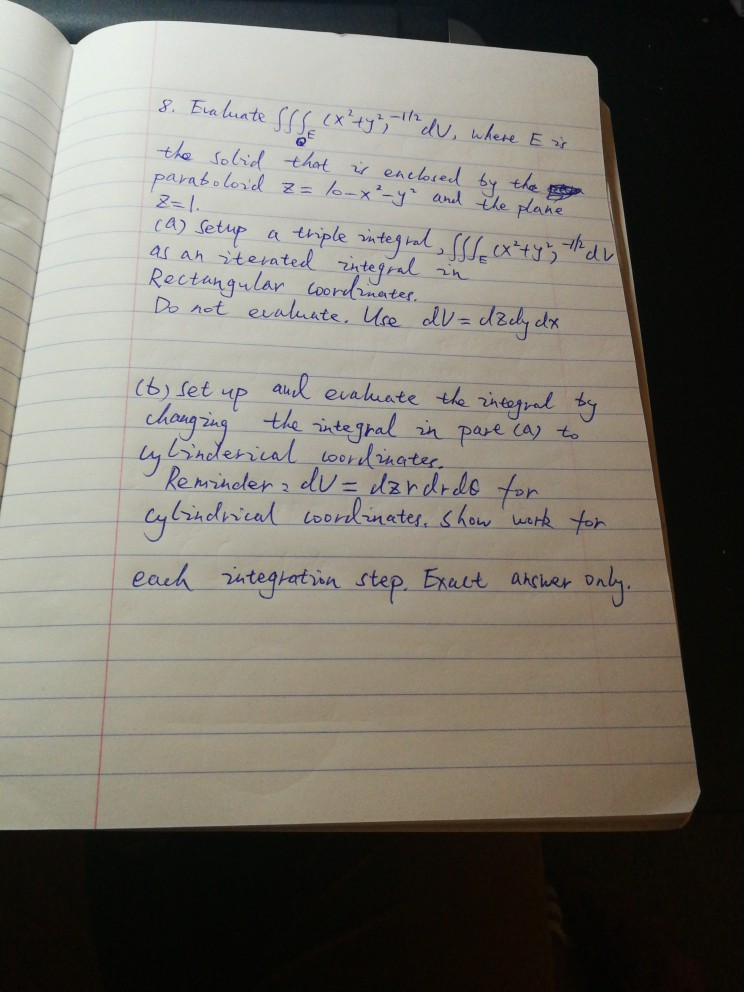 8. Evaluate ∭_E (x²+y²)^{-1/2} dV, where E is
the solid that is enclosed by the
paraboloid z = 10-x²-y² and the plane
z=1.
(a) setup a triple integral, ∭_E (x²+y²)^{-1/2} dV
as an iterated integral in
Rectangular coordinates.
Do not evaluate. Use dV = dzdydx
(b) set up and evaluate the integral by
changing the integral in part (a) to
cylinderical coordinates.
Reminder: dV = dzrdrdθ for
cylindrical coordinates. Show work for
each integration step. Exact answer only.